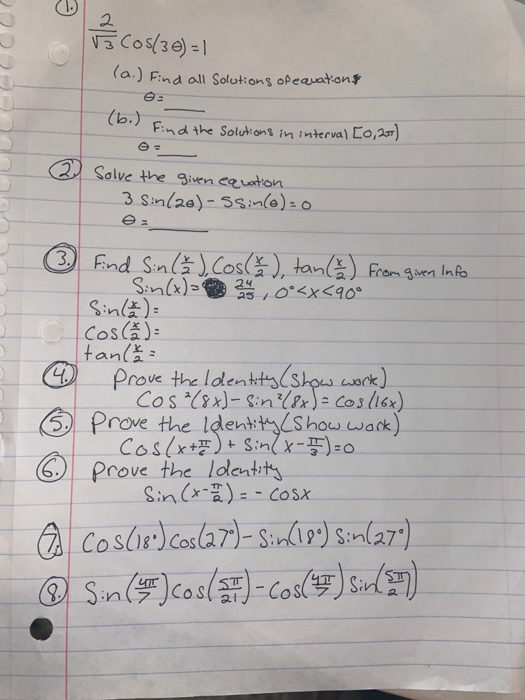 1.
2/√3 Cos(3θ)=1
(a.) Find all Solutions of equations
θ=
(b.) Find the Solutions in interval [0,2π)
θ=
2. Solve the given equation
3 Sin(2θ)-5Sin(θ)=0
θ=
3. Find Sin(x/2), Cos(x/2), tan(x/2) From given Info
Sin(x)= 24/25, 0°<x<90°
Sin(x/2)=
Cos(x/2)=
tan(x/2=
4. Prove the Identity (Show work)
Cos²(8x)-Sin²(8x)=Cos(16x)
5. Prove the Identity (Show work)
Cos(x+π/6)+Sin(x-π/3)=0
6. Prove the Identity
Sin(x-π/2)=-cosx
7. Cos(18°)Cos(27°)-Sin(18°)Sin(27°)
8. Sin(4π/7)cos(5π/21)-Cos(4π/7)Sin(5π/2))